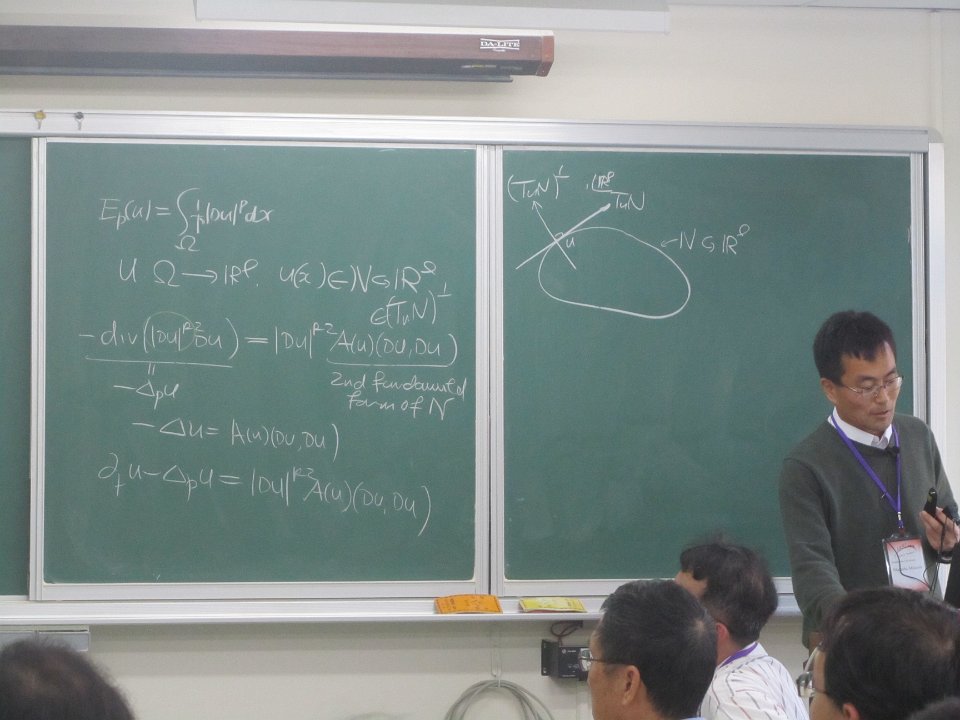 DA-LITE
E_p(u) = ∫_Ω 1/p |Du|^p dx
u Ω → ℝ^l. u(x) ∈ N ↪ ℝ^l
∈ (T_uN)^⊥
-div(|Du|^{p-2} Du) = |Du|^{p-2} A(u)(Du, Du)
=
-Δ_p u
2nd fundamental
form of N
-Δu = A(u)(Du, Du)
∂_t u - Δ_p u = |Du|^{p-2} A(u)(Du, Du)
(T_uN)^⊥
ℝ^l
T_uN
u
N ↪ ℝ^l